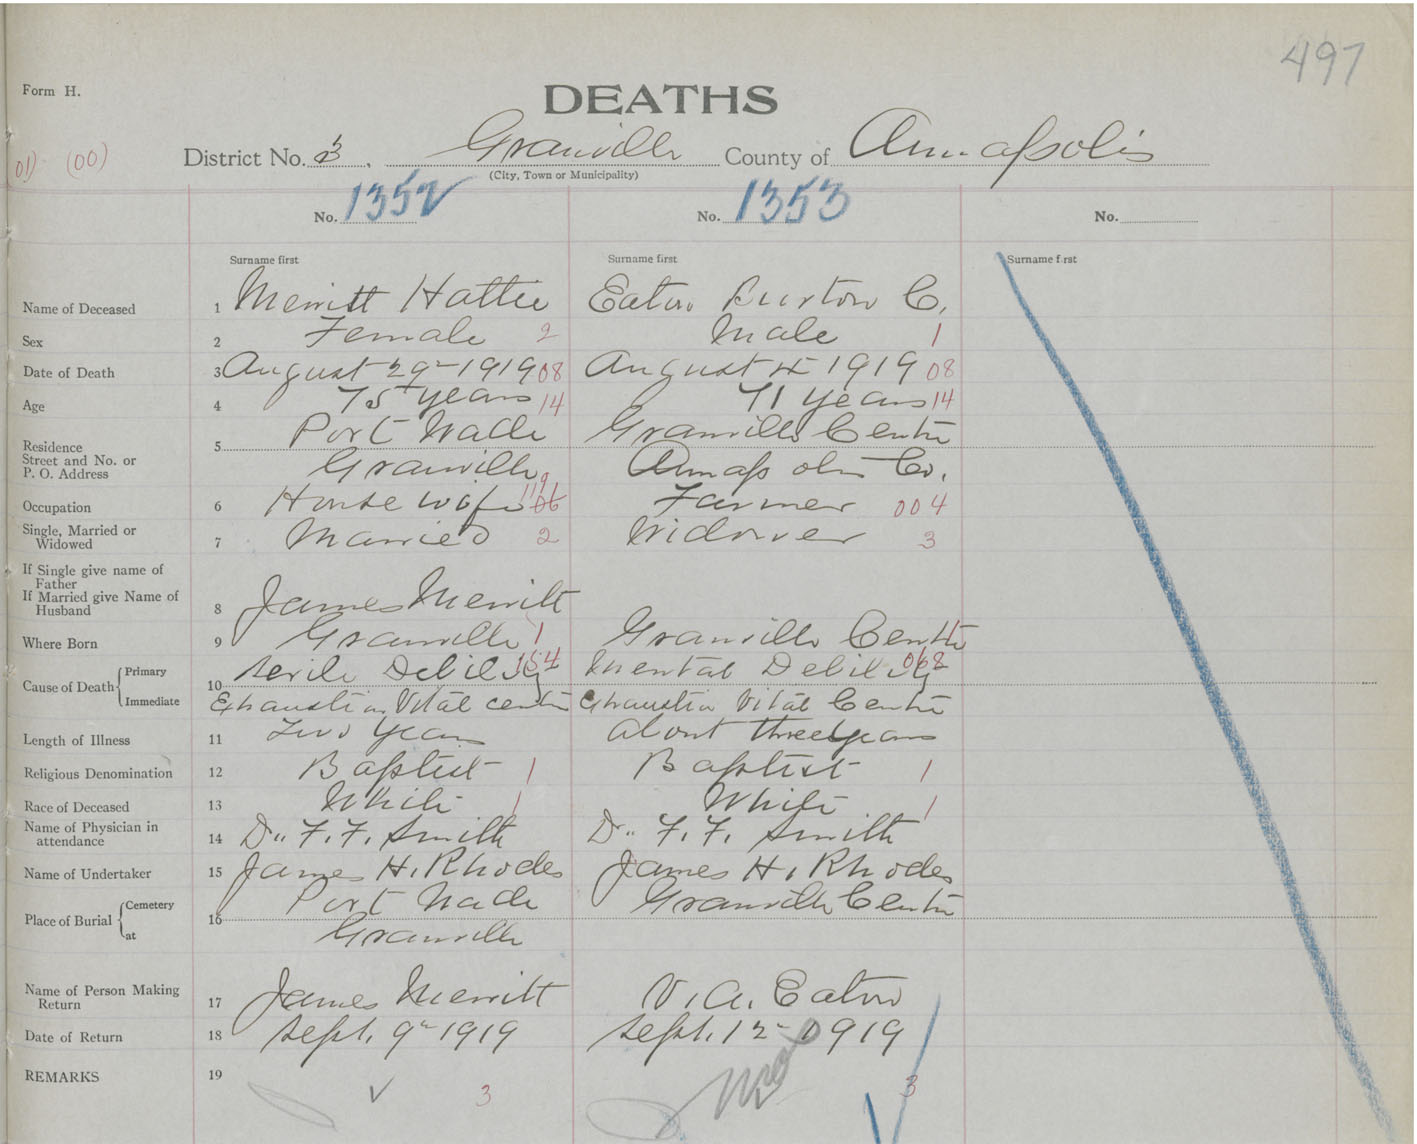 497
Form H.
DEATHS
01) (00)
District No. 3, Granville County of Annapolis
(City, Town or Municipality)
No. 1352 No. 1353 No.
Surname first Surname first Surname first
Name of Deceased 1 Merritt Hattie Eaton Burton C.
Sex 2 Female 2 Male 1
Date of Death 3 August 29" 1919 08 August 4 1919 08
Age 4 75 years 14 71 years 14
Residence 5 Port Wade Granville Centre
Street and No. or
P. O. Address Granville Annapolis Co.
119
Occupation 6 House wife 06 Farmer 004
Single, Married or
Widowed 7 Married 2 Widower 3
If Single give name of
Father
If Married give Name of
Husband 8 James Merritt
Where Born 9 Granville 1 Granville Centre
Cause of Death Primary 10 Senile Debility 154 Mental Debility 068
Immediate Exhaustion Vital centre Exhaustion Vital Centre
Length of Illness 11 Two years about three years
Religious Denomination 12 Baptist 1 Baptist 1
Race of Deceased 13 White 1 White 1
Name of Physician in
attendance 14 Dr. F. F. Smith Dr. F. F. Smith
Name of Undertaker 15 James H. Rhodes James H. Rhodes
Place of Burial Cemetery 16 Port Wade Granville Centre
at Granville
Name of Person Making
Return 17 James Merritt V. A. Eaton
Date of Return 18 Sept. 9" 1919 Sept. 12" 1919
REMARKS 19
3 3